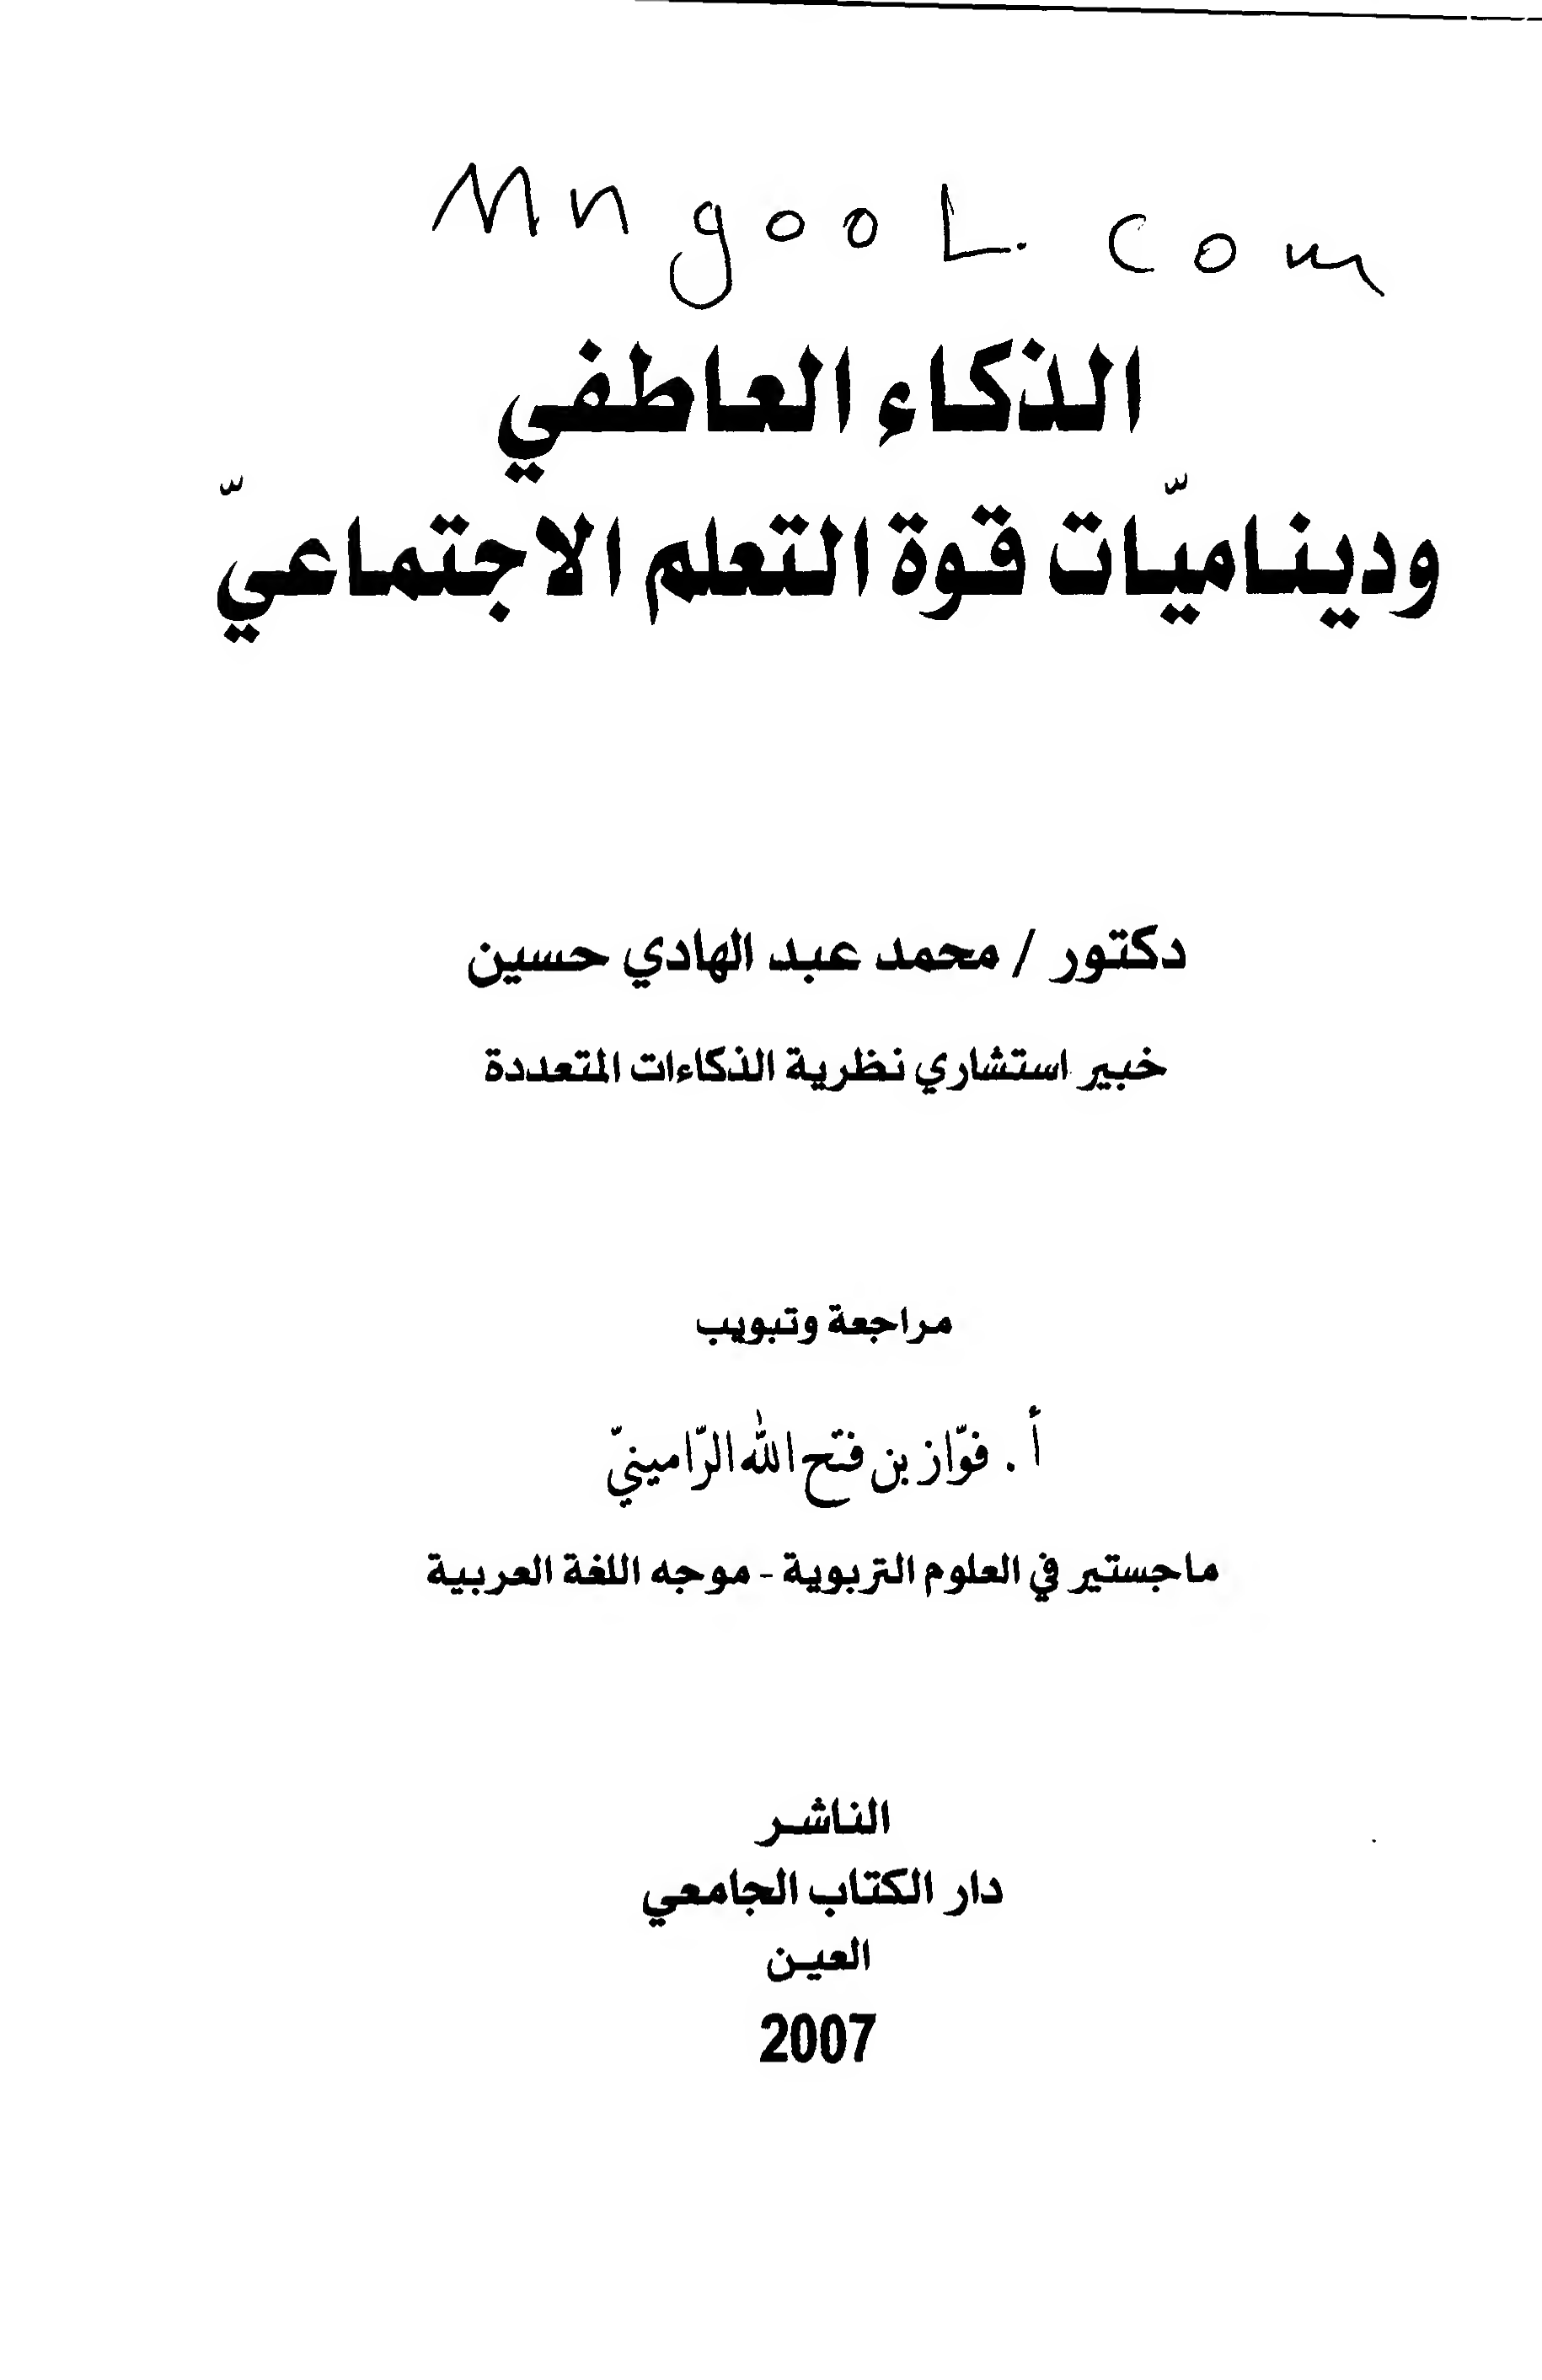 Mngool.com
الذكاء العاطفي
وديناميّات قوة التعلم الاجتماعيّ
دكتور / محمد عبد الهادي حسين
خبير استشاري نظرية الذكاءات المتعددة
مراجعة وتبويب
أ. فوّاز بن فتح الله الرّامينيّ
ماجستير في العلوم التربوية - موجه اللغة العربية
الناشر
دار الكتاب الجامعي
العين
2007